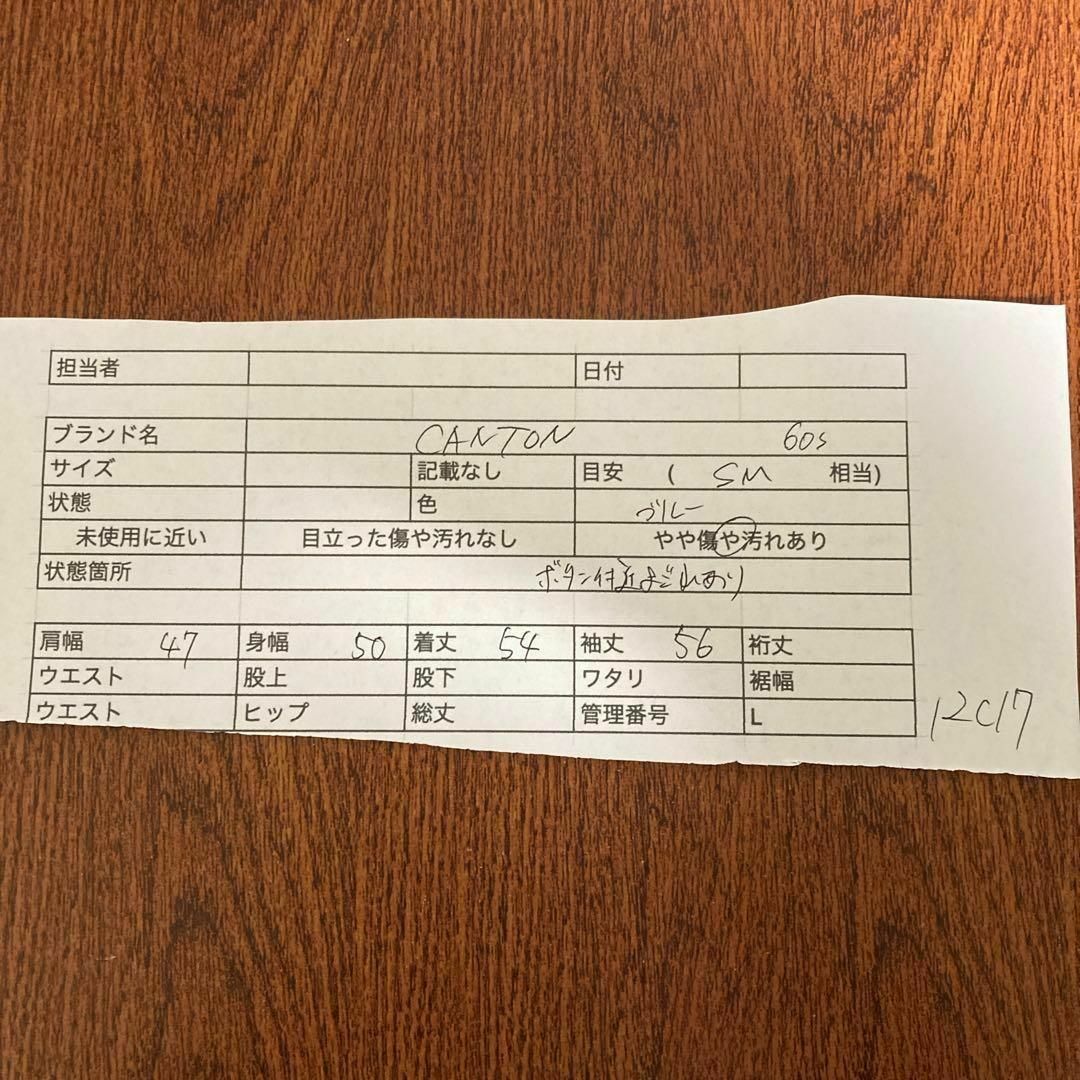 担当者 日付
ブランド名 CANTON 60s
サイズ 記載なし 目安 ( SM 相当)
状態 色 ブルー
未使用に近い 目立った傷や汚れなし やや傷や汚れあり
状態箇所 ボタン付近よごれあり
肩幅 47 身幅 50 着丈 54 袖丈 56 裄丈
ウエスト 股上 股下 ワタリ 裾幅
ウエスト ヒップ 総丈 管理番号 L 12C17